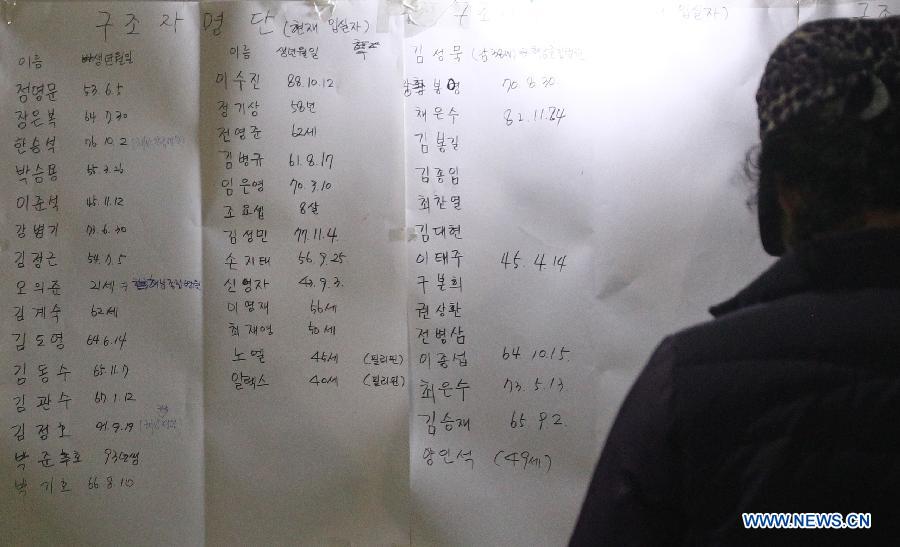 구조자 명단 (현재 입실자)
이름 생년월일
정명문 53.6.5
장은복 64.7.30
한승석 76.10.2
박승용 55.3.26
이준석 45.11.12
강병기 71.6.30
김정근 54.7.5
오의준 21세
김계숙 62세
김도영 64.6.14
김동수 65.11.7
김관수 67.1.12
김정호 91.9.19
박준호 93년생
박기호 66.8.10
이름 생년월일
이수진 88.10.12
정기상 58년
전영준 62세
김병규 61.8.17
임은영 70.3.10
조요셉 8살
김성민 77.11.4.
손지태 56.9.25
신영자 43.9.3.
이영재 56세
최재영 50세
노엘 45세 (필리핀)
알렉스 40세 (필리핀)
구조 입실자)
김성묵
황봉영 70.8.30
채은수 82.11.24
김봉길
김종임
최찬열
김대현
이태주 45.4.14
구본희
권상환
전병삼
이종섭 64.10.15.
최은수 73.5.13
김승재 65.9.2.
양인석 (49세)
구조
WWW.NEWS.CN